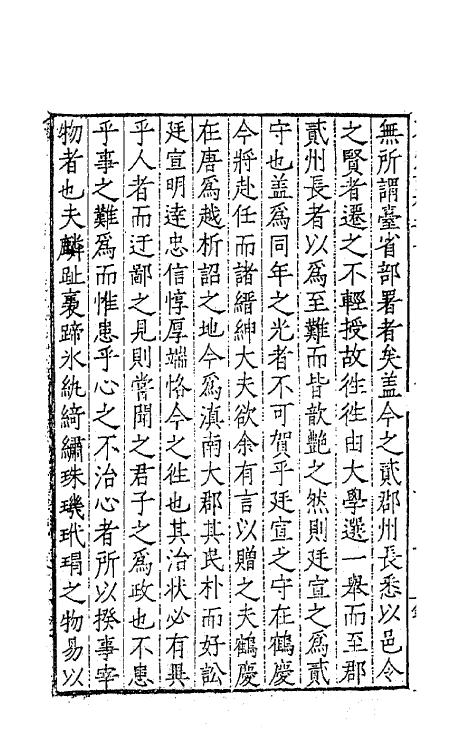 無所謂臺省部署者矣盖今之貳郡州長悉以邑令
之賢者遷之不輕授故徃徃由大學選一舉而至郡
貳州長者以爲至難而皆歆艷之然則廷宣之爲貳
守也盖爲同年之光者不可賀乎廷宣之守在鶴慶
今將赴任而諸縉紳大夫欲余有言以贈之夫鶴慶
在唐爲越析詔之地今爲滇南大郡其民朴而好訟
廷宣明達忠信惇厚端恪今之徃也其治狀必有異
乎人者而迂鄙之見則嘗聞之君子之爲政也不患
乎事之難爲而惟患乎心之不治心者所以揆事宰
物者也夫麟趾褭蹄氷紈綺繡珠璣玳瑁之物易以